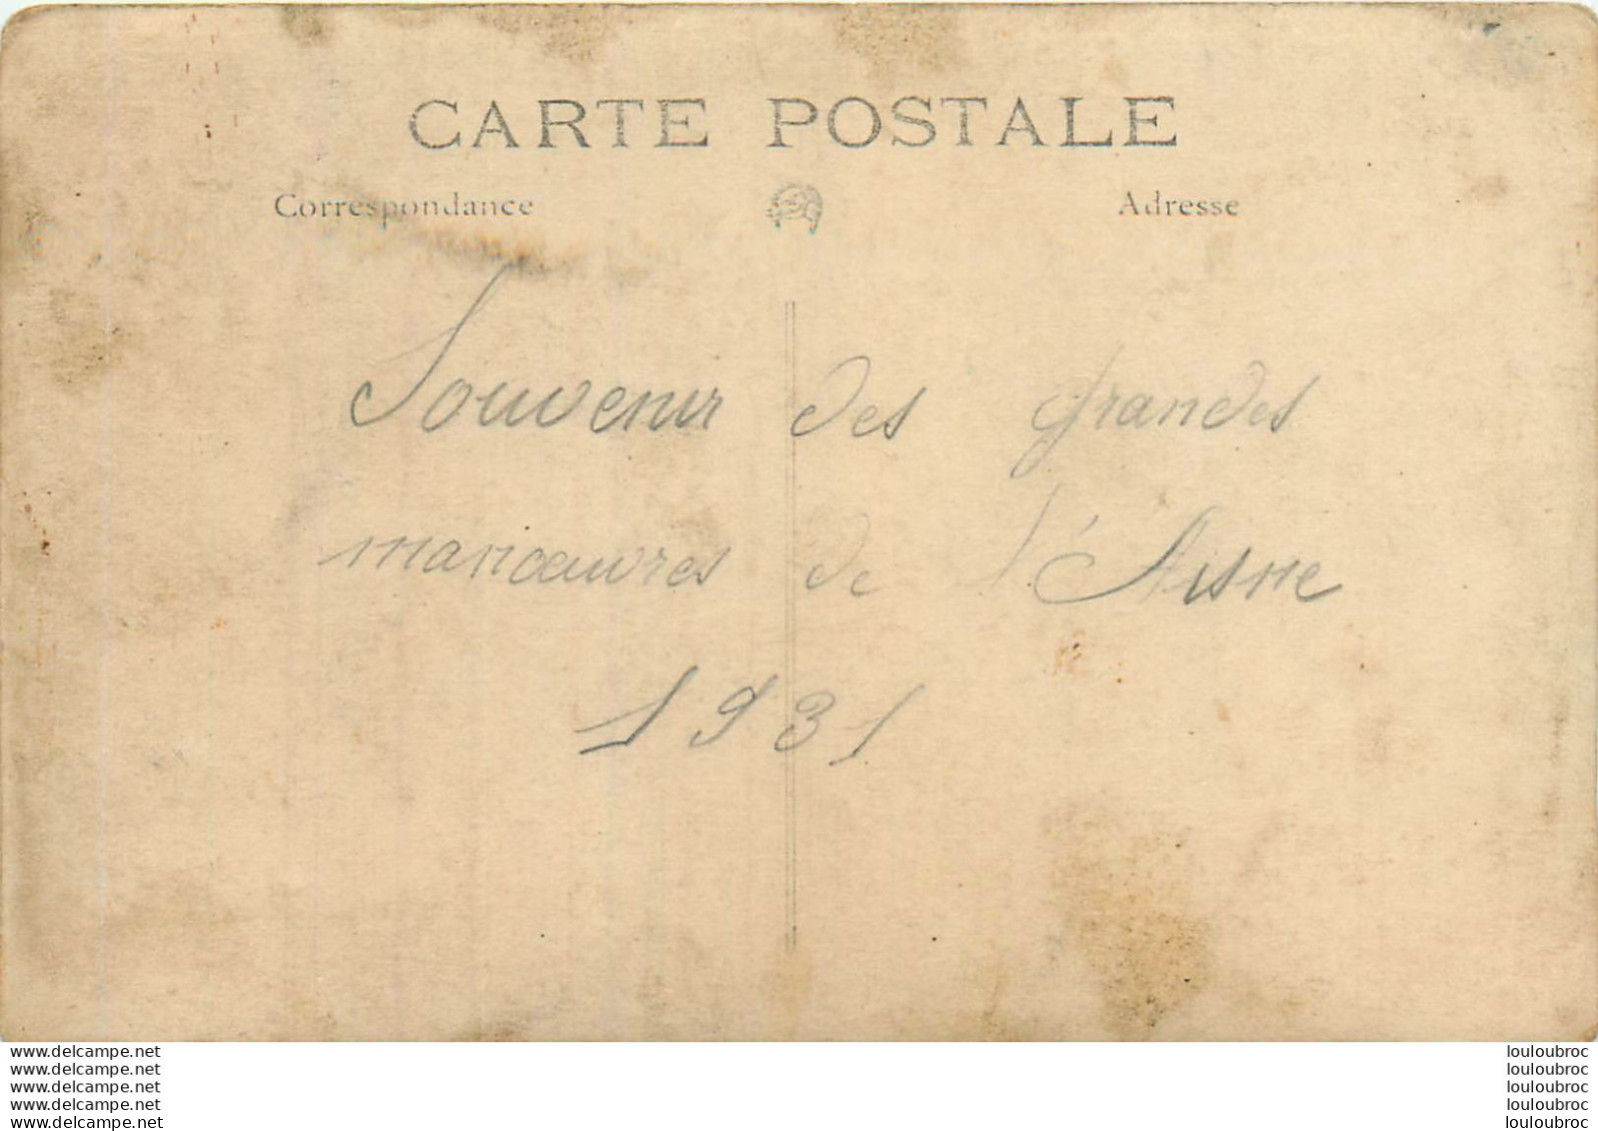 CARTE POSTALE
Correspondance
Adresse
Souvenir des grandes
manoeuvres de l'Aisne
1931
www.delcampe.net
www.delcampe.net
www.delcampe.net
www.delcampe.net
www.delcampe.net
louloubroc
louloubroc
louloubroc
louloubroc
louloubroc